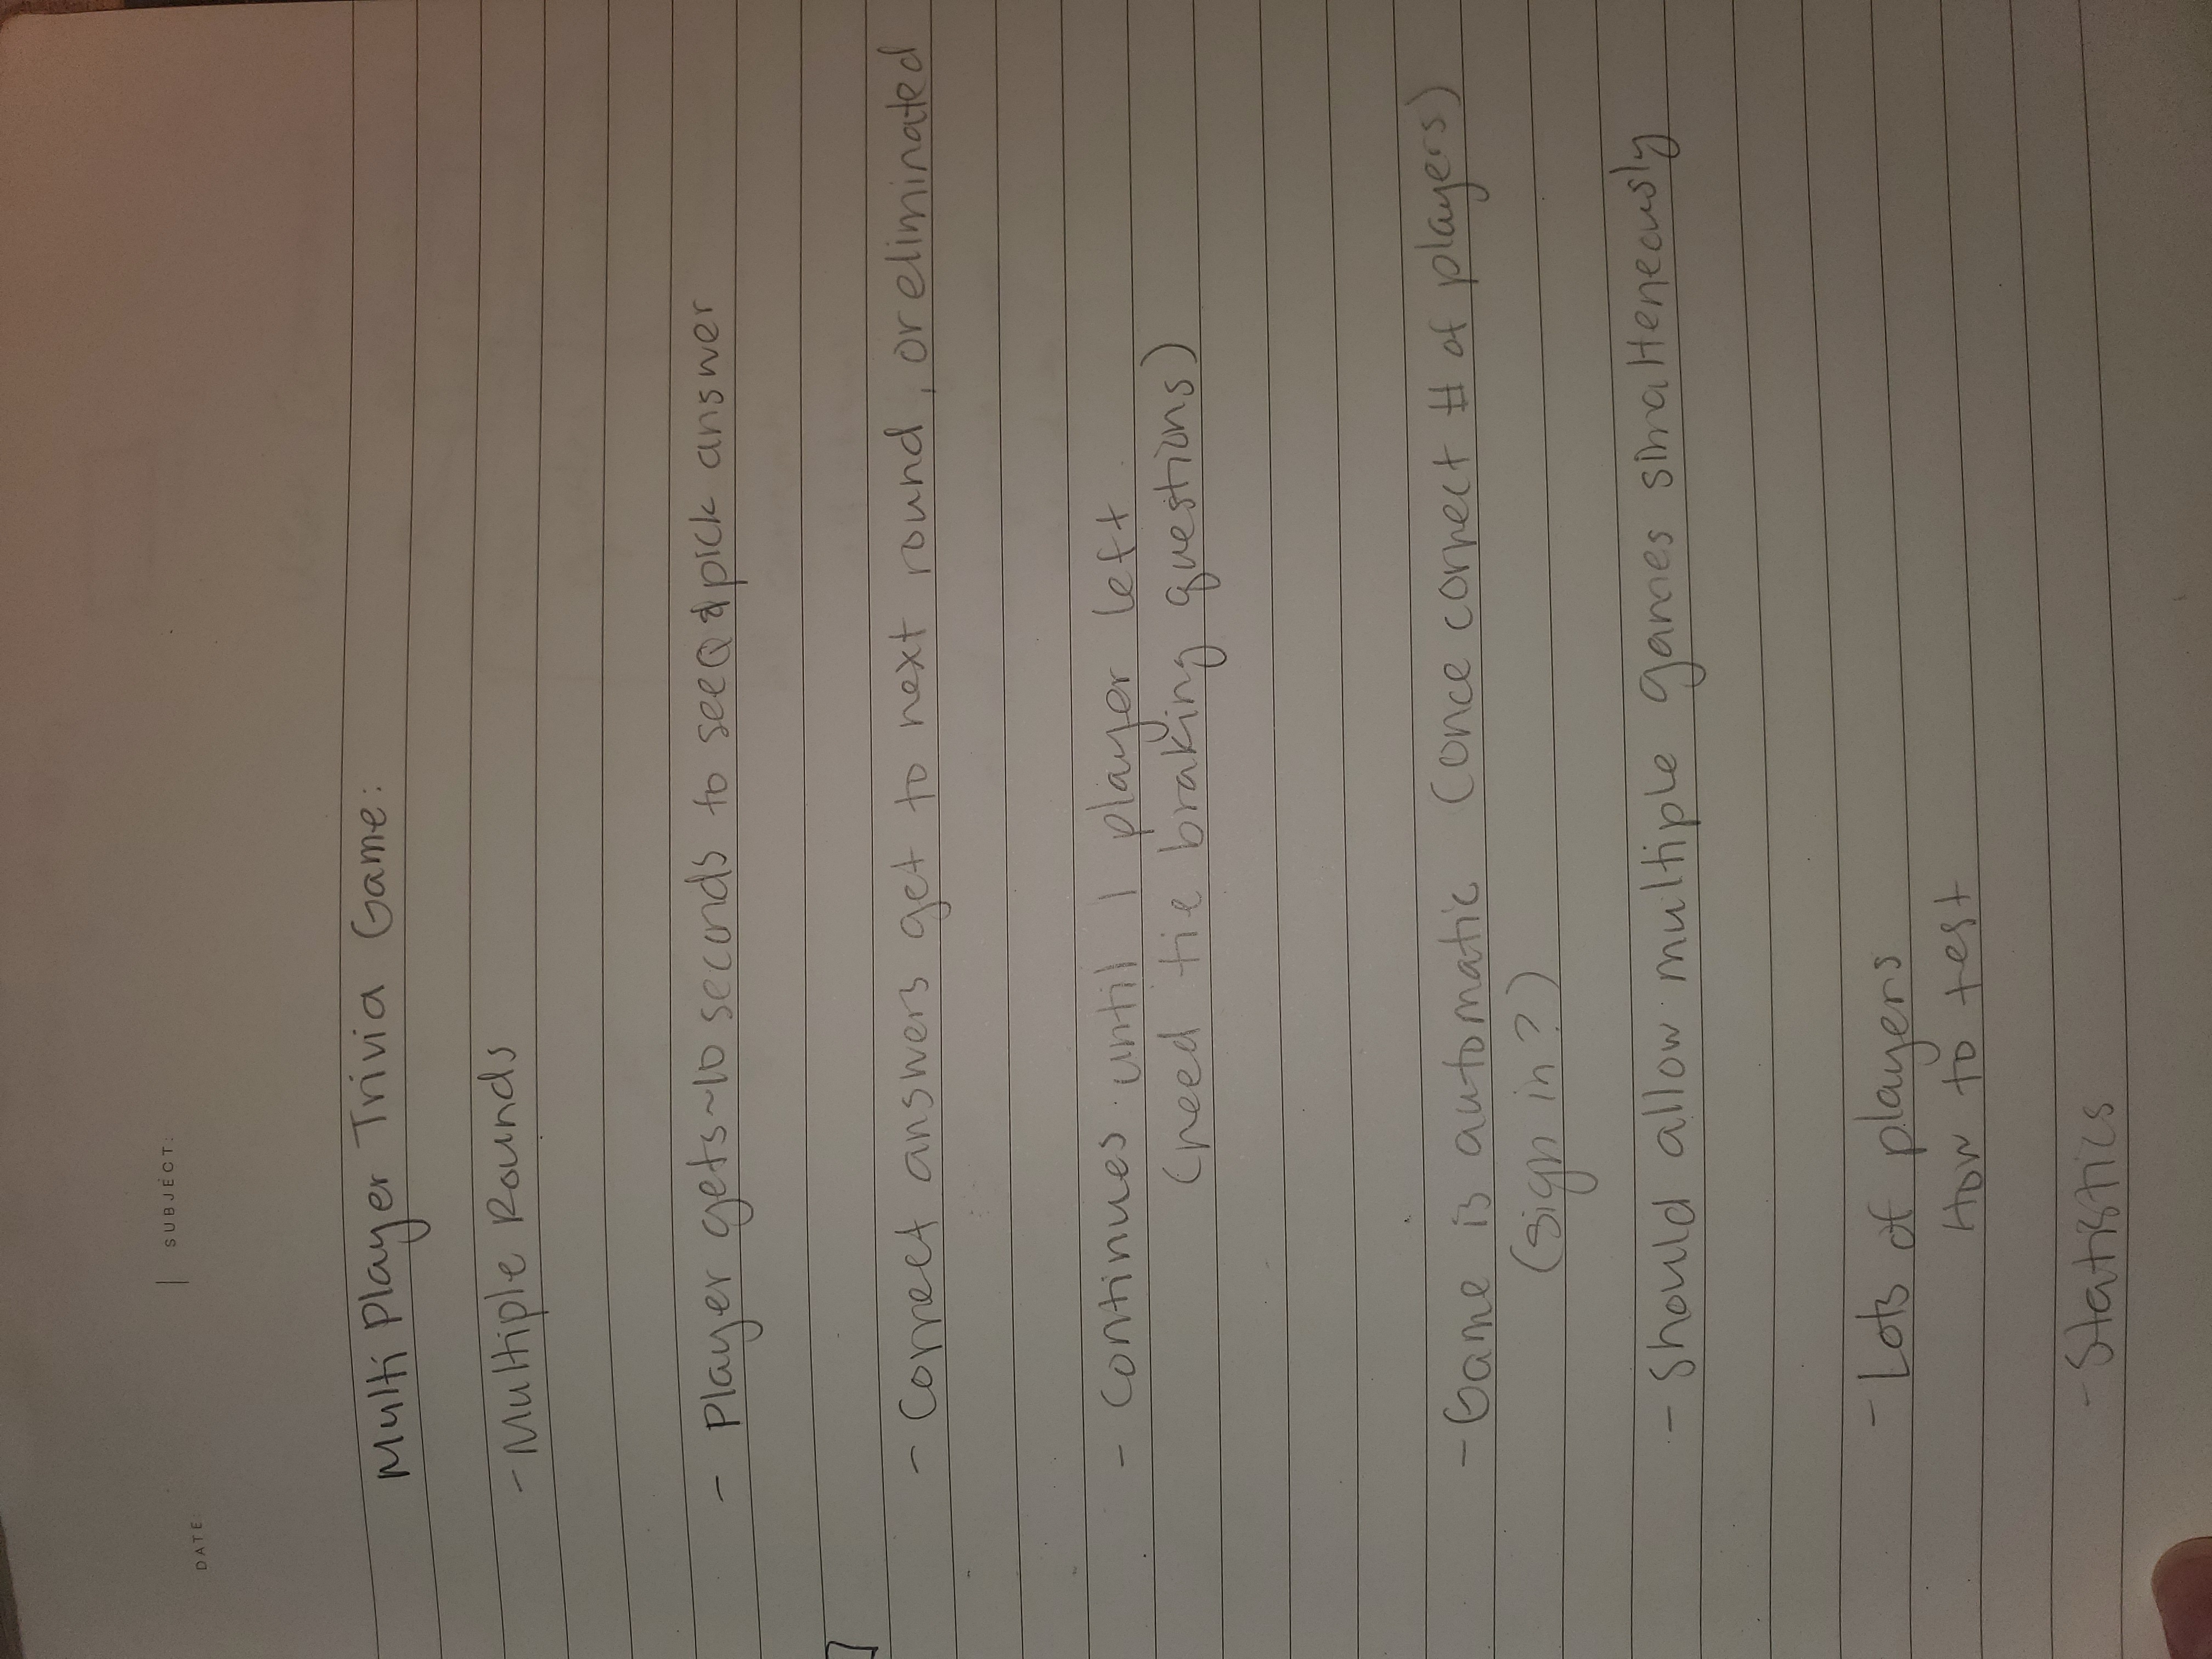 DATE:
| SUBJECT:
Multi Player Trivia Game:
- Multiple Rounds
- Player gets ~10 seconds to see Q & pick answer
]
- Correct answers get to next round, or eliminated
- Continues until 1 player left
(need tie braking questions)
- Game is automatic (once correct # of players)
(sign in?)
- Should allow multiple games simalteneously
- Lots of players
How to test
- Statistics